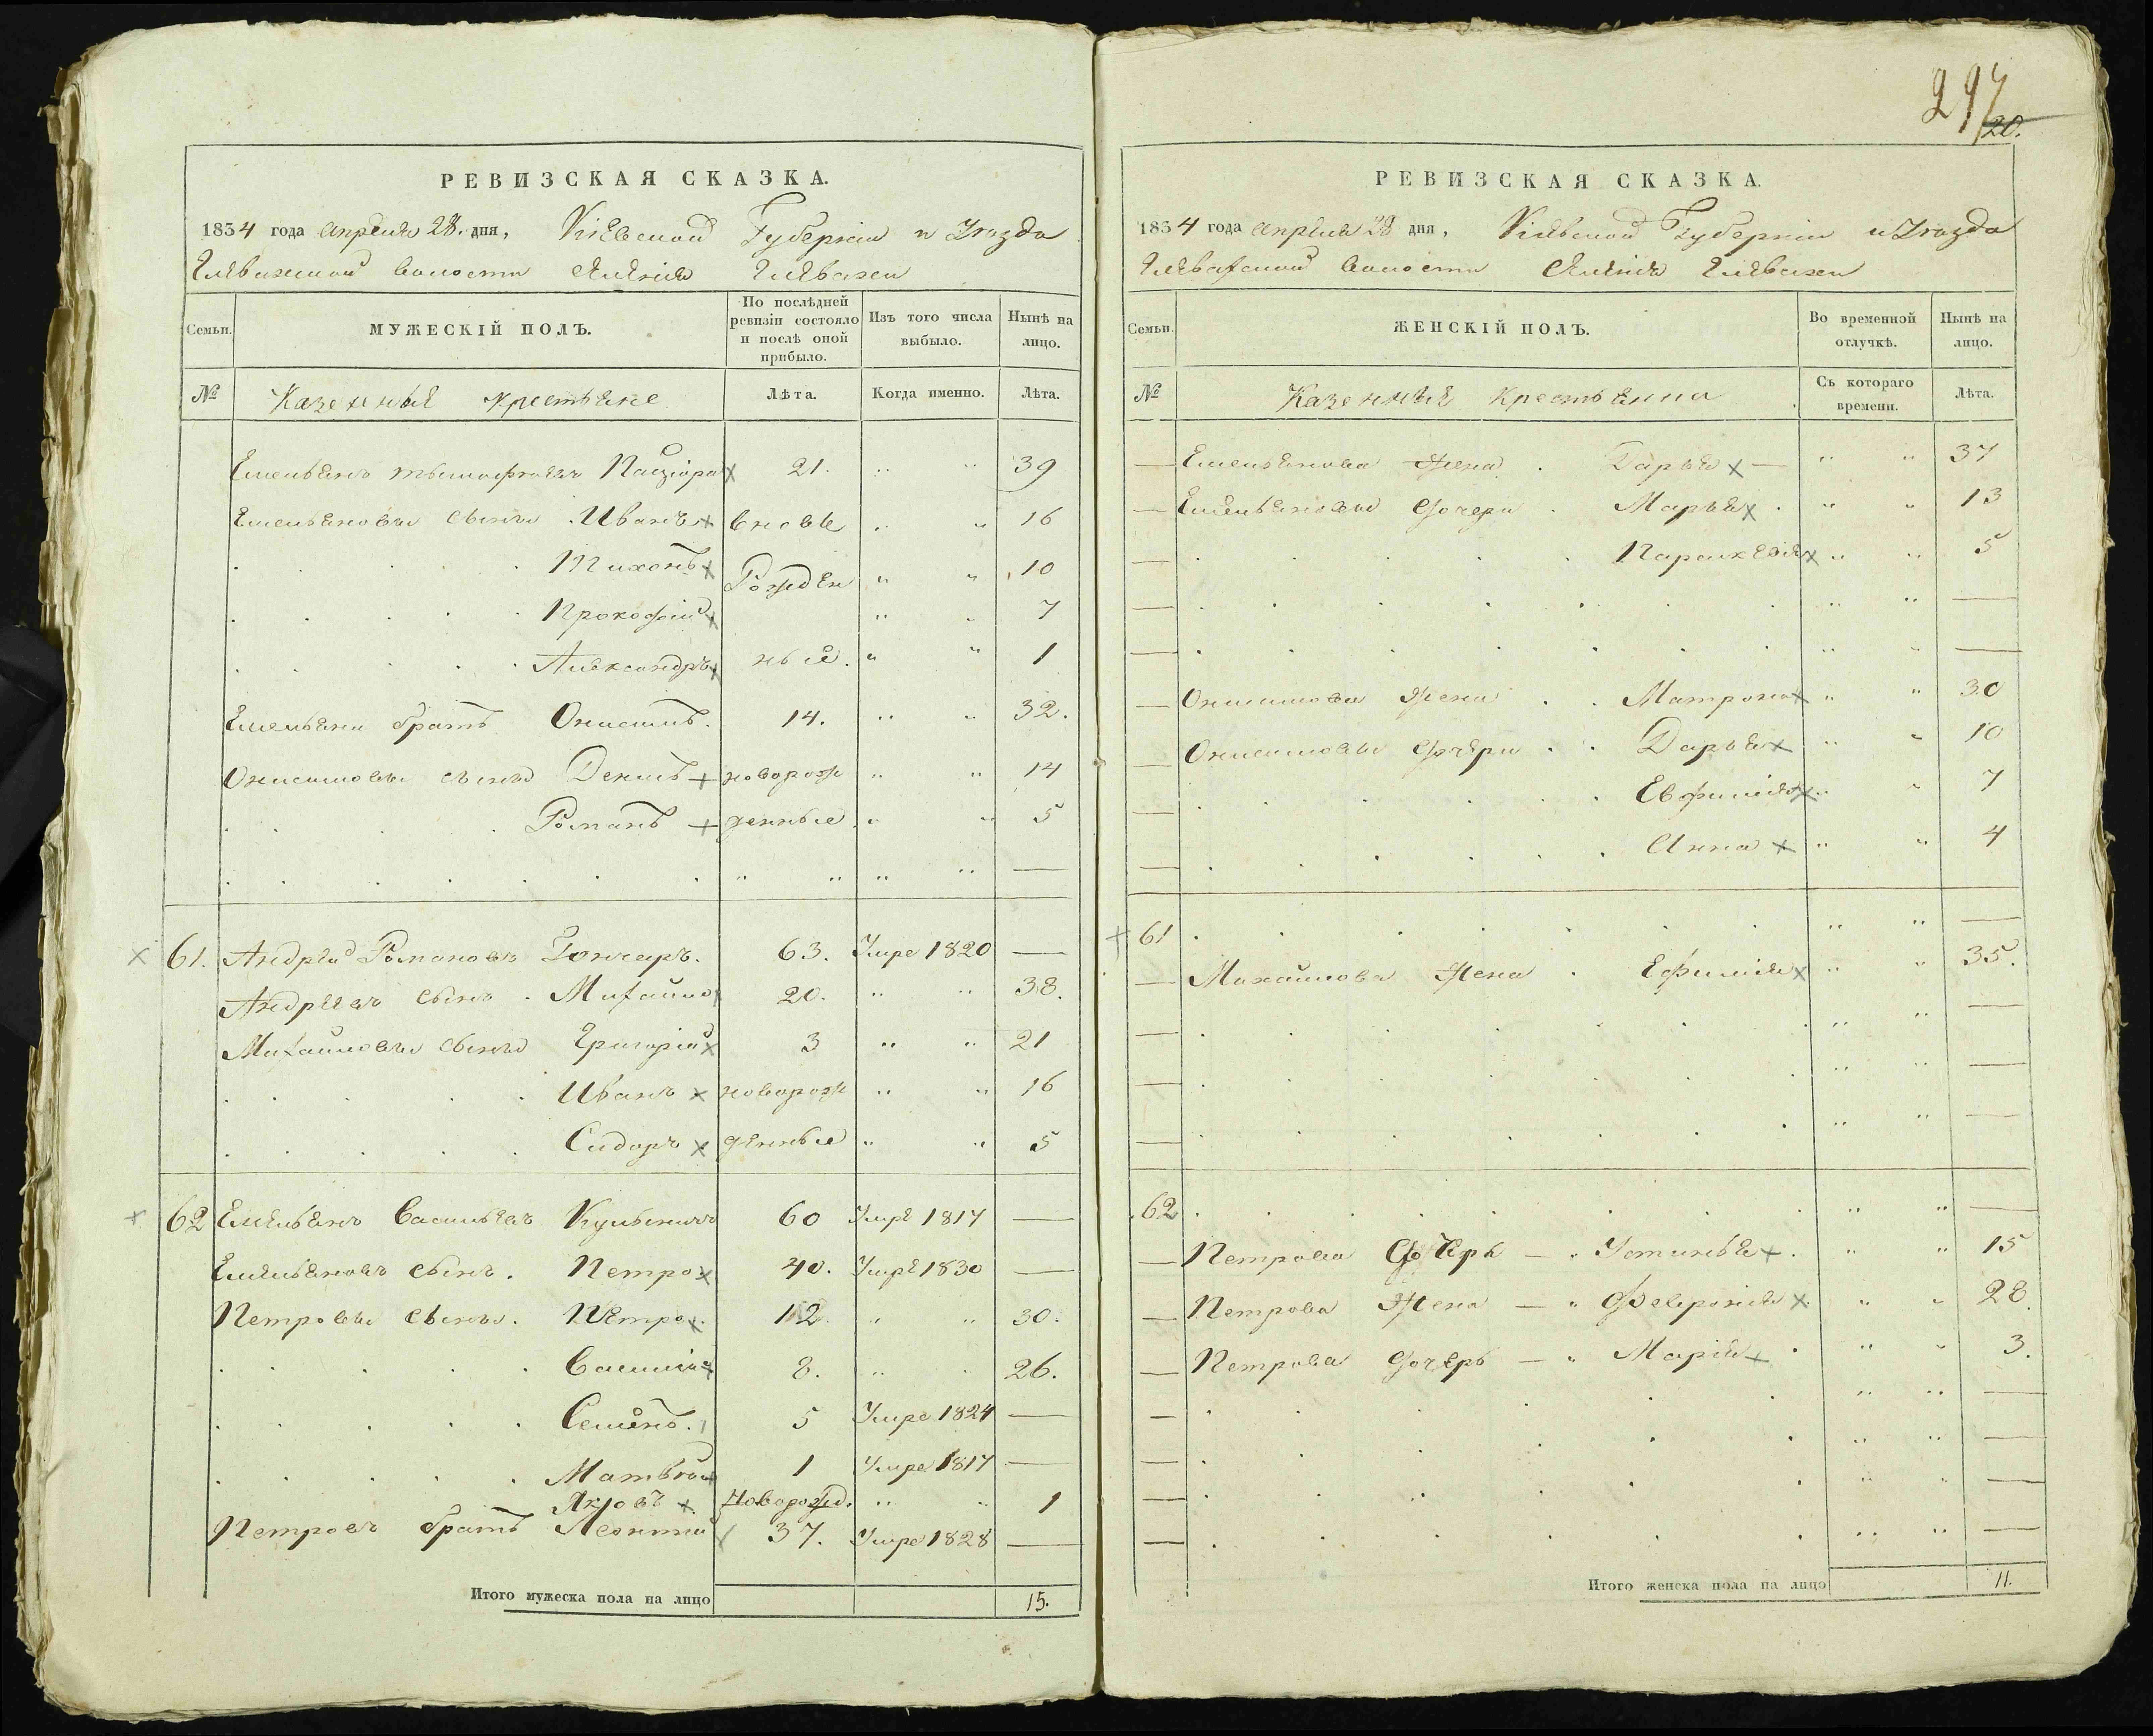 РЕВИЗСКАЯ СКАЗКА.
1834 года Апреля 28. дня, Кіевской Губерніи и Уѣзда
волости селенія
Семьи. МУЖЕСКІЙ ПОЛЪ. По послѣдней ревизіи состояло и послѣ оной прибыло. Изъ того числа выбыло. Нынѣ на лицо.
№ Казенные крестьяне Лѣта. Когда именно. Лѣта.
Емельянъ 21. " " 39
Емельяновы сыны . Иванъ вновь " " 16
Тихонъ Рожден " " 10
Прокофій " " 7
Александръ ные. " " 1
Емельяна братъ Онисимъ. 14. " " 32.
Онисимовы сыны Денисъ новорож " " 14
Романъ денные " " 5
" " " " —
61. Андрей Романовъ Гончаръ. 63. Умре 1820 —
Андреевъ сынъ . Михайло 20. " " 38.
Михайловы сыны Григорій 3 " " 21
Иванъ новорож " " 16
Сидоръ денные " " 5
62 Емельянъ Васильевъ 60 Умре 1817 —
Емельяновъ сынъ . Петро 40. Умре 1830 —
Петровы сыны . Петро 12. " " 30.
Василій 8. " " 26.
Семенъ. 5 Умре 1824 —
Матвѣй 1 Умре 1817 —
Яковъ Новорожд. " " 1
Петровъ братъ Леонтій 37. Умре 1828 —
Итого мужеска пола на лицо 15.
297
20.
РЕВИЗСКАЯ СКАЗКА.
1834 года Апреля 28 дня, Кіевской Губерніи и Уѣзда
волости селенія
Семьи. ЖЕНСКІЙ ПОЛЪ. Во временной отлучкѣ. Нынѣ на лицо.
№ Казенные крестьянки Съ котораго времени. Лѣта.
— Емельянова жена . Дарья — " " 37
— Емельяновы дочери . Марья . " " 13
— Параскевія " " 5
— " " —
— " " —
— Онисимова жена . . Матрона " " 30
— Онисимовы дочери . . Дарья " " 10
— Евфимія " " 7
— Анна " " 4
61 " " —
— Михайлова жена . Ефимія " " 35.
— " " —
— " " —
— " " —
62 " " —
— Петрова дочерь — " Устинья . " " 15
— Петрова жена — " Февронія " " 28.
— Петрова дочерь — " Марія . " " 3.
— " " —
— " " —
— " " —
— " " —
Итого женска пола на лицо 11.